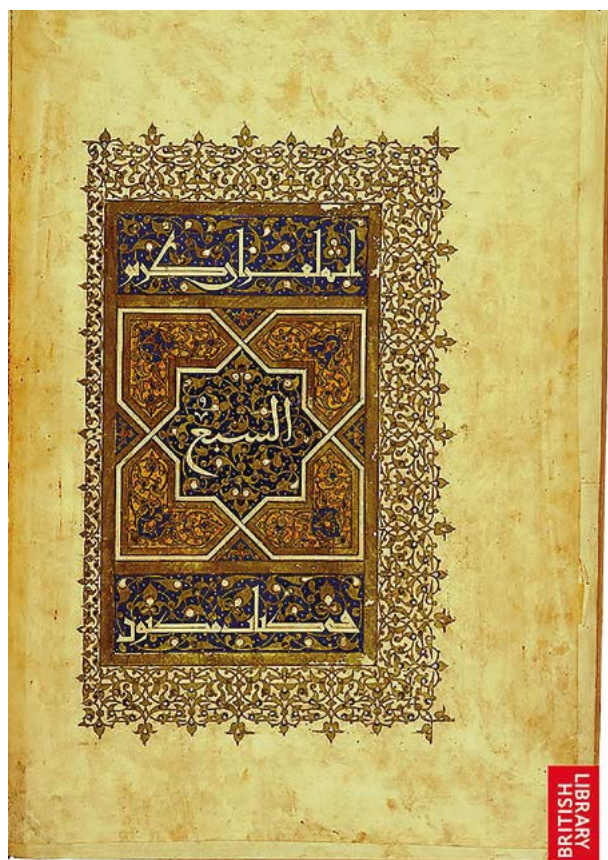 انه لقرآن كريم
السبع
في كتاب مكنون
BRITISH
LIBRARY